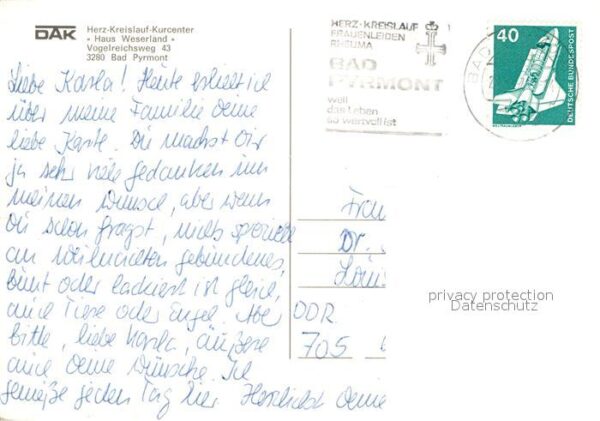 DAK
Herz-Kreislauf-Kurcenter
» Haus Weserland «
Vogelreichsweg 43
3280 Bad Pyrmont
HERZ-KREISLAUF
FRAUENLEIDEN
RHEUMA
BAD
PYRMONT
weil
das Leben
so wertvoll ist
BAD
40
DEUTSCHE BUNDESPOST
Liebe Karla! Heute erhielt ich
über meine Familie Deine
liebe Karte. Du machst Dir
ja sehr viele Gedanken um
meinen Wunsch, aber wenn
Du schon fragst, nichts spezielle
an Weihnachten gebundenes,
bunt oder lackiert ist gleich,
auch Tiere oder Engel. Aber
bitte, liebe Karla, äußere
auch Deine Wünsche. Ich
genieße jeden Tag hier Herzlichst Deine
Frau
Dr.
Louis
DDR
705
privacy protection
Datenschutz